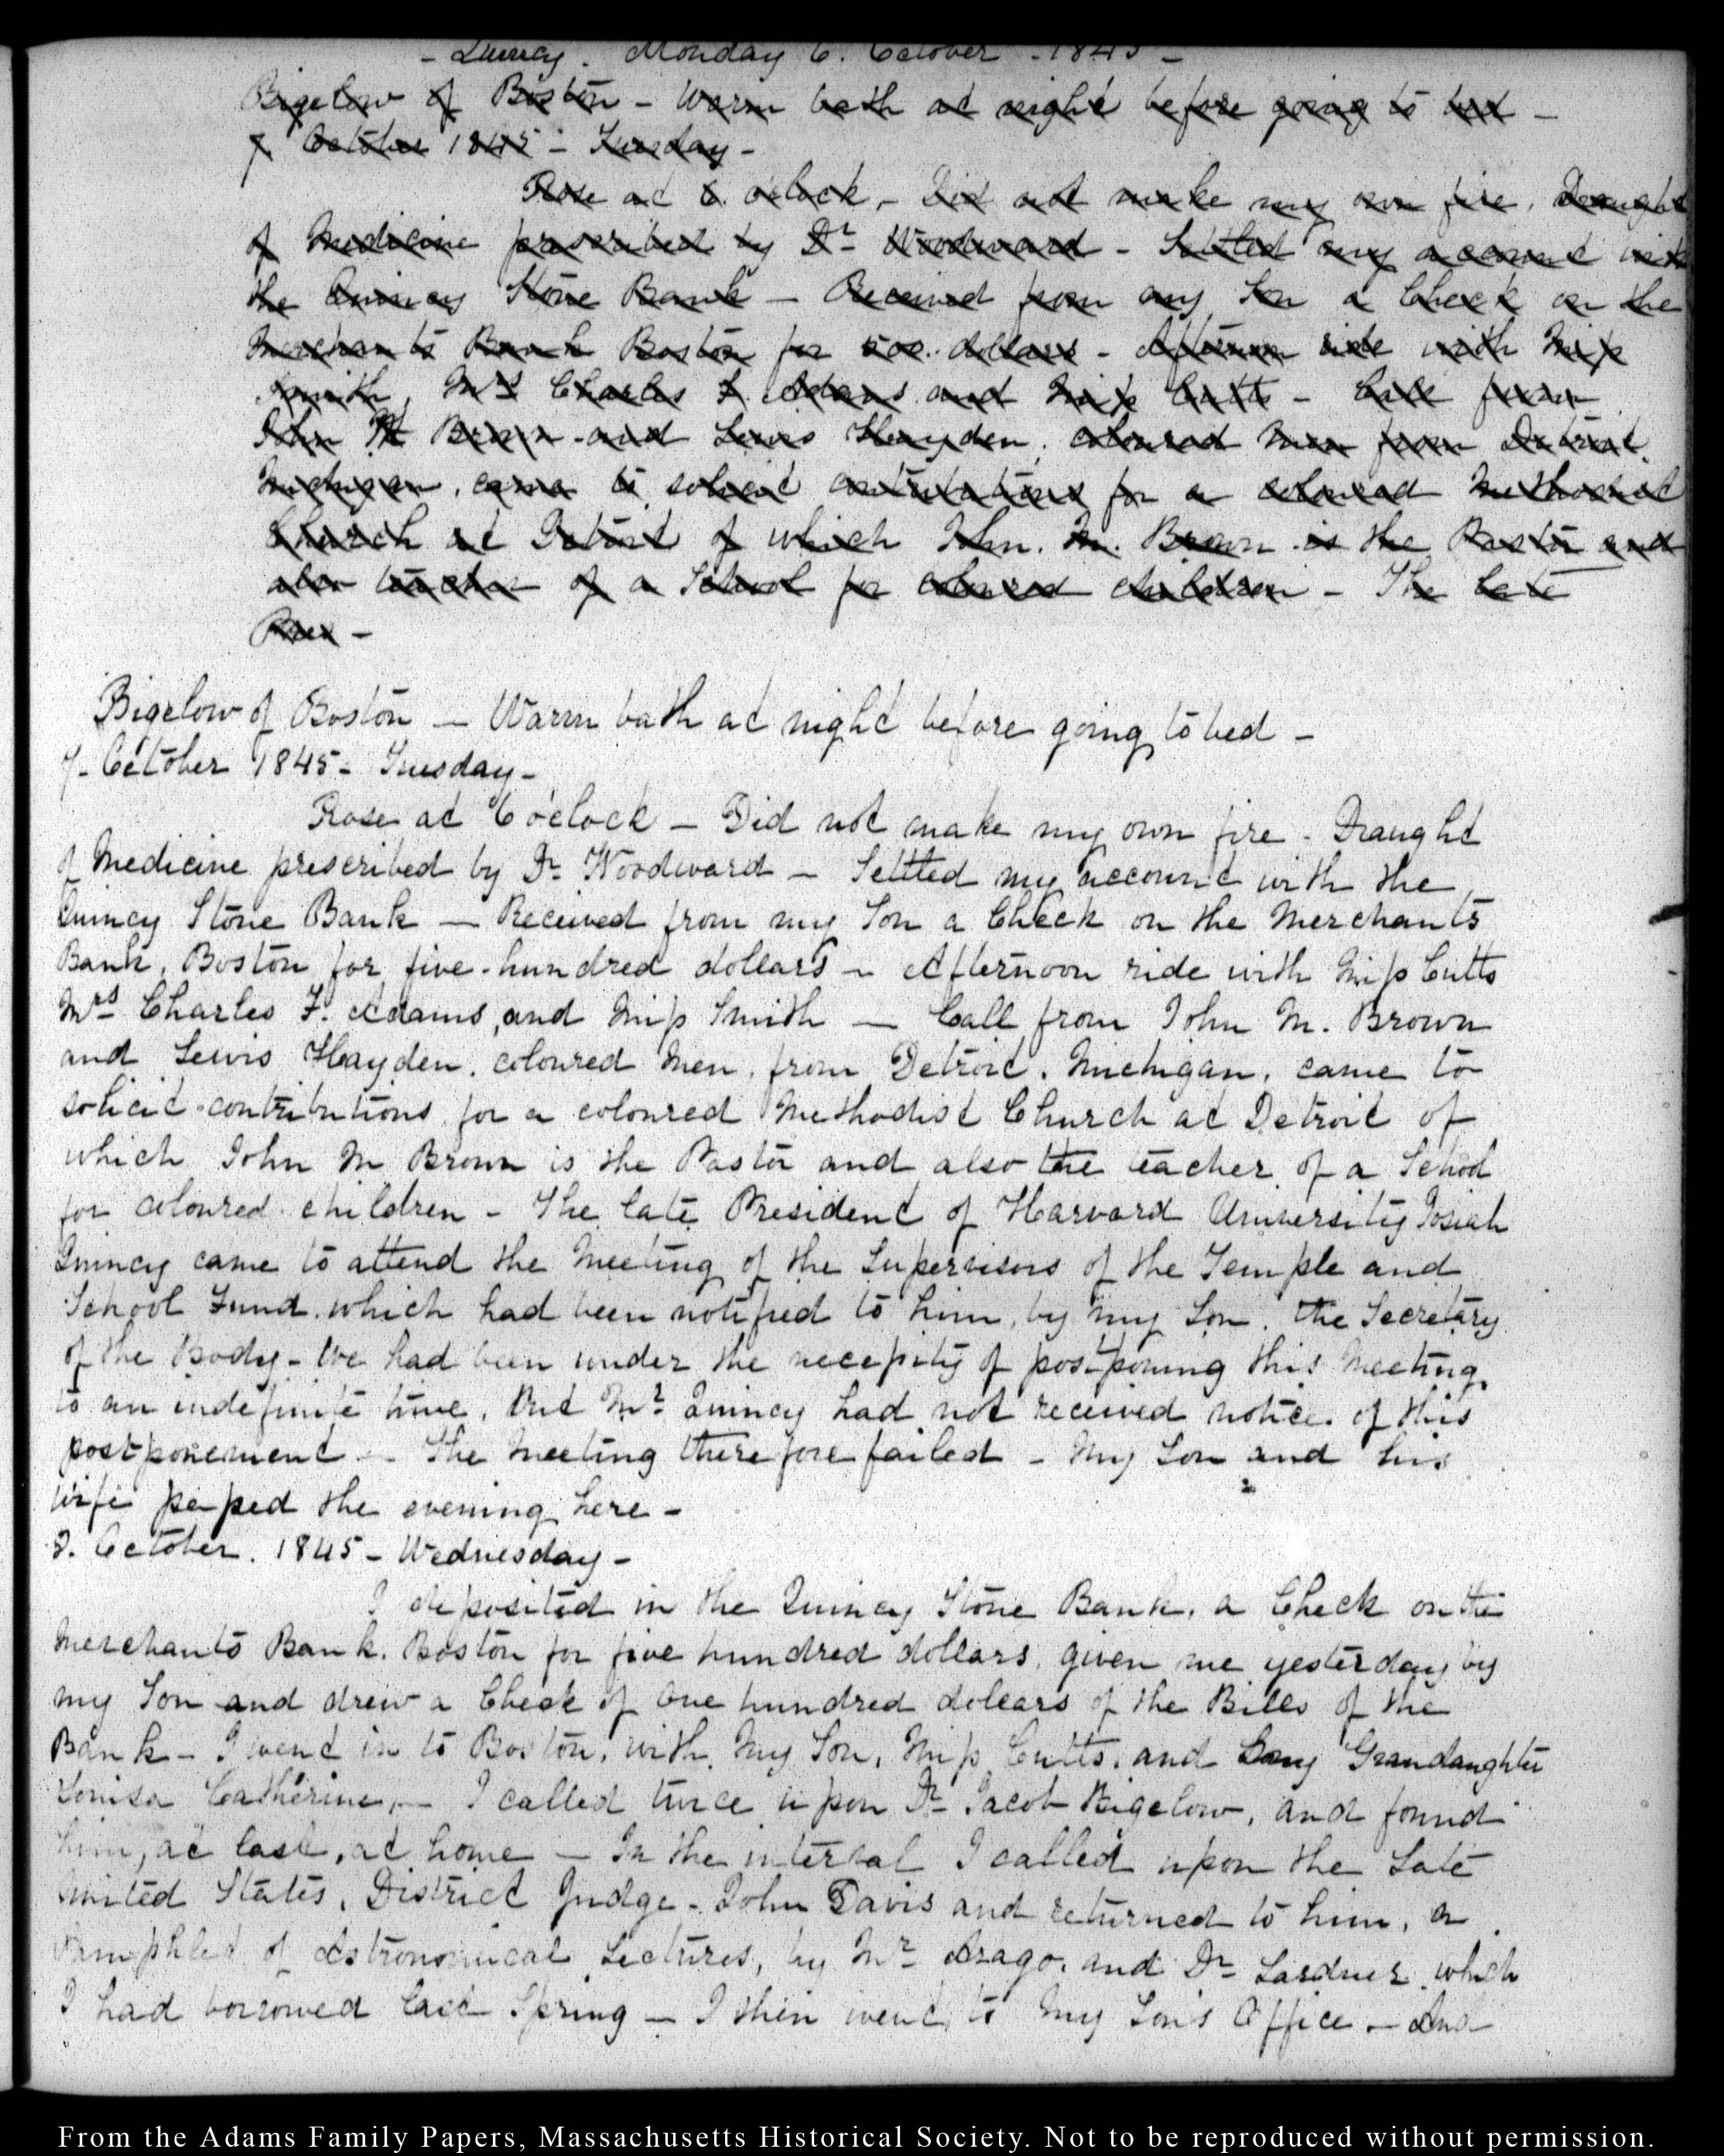 - Quincy. Monday 6. October - 1845 -
Bigelow of Boston - Warm bath at night before going to bed -
7. October 1845 - Tuesday -
Rose at 6. o'clock, - Did not make my own fire. Draught
of Medicine prescribed by Dr. Woodward - Settled my account with
the Quincy Stone Bank - Received from my Son a Check on the
Merchants Bank Boston for 500. dollars - Afternoon ride with Miss
Smith, Mrs Charles F. Adams and Miss Cutts - Call from
John M Brown and Lewis Hayden, coloured Men from Detroit.
Michigan, came to solicit contributions for a coloured Methodist
Church at Detroit of which John. M. Brown is the Pastor and
also teacher of a School for coloured children - The late
Pres -
Bigelow of Boston - Warm bath at night before going to bed -
7- October 1845 - Tuesday -
Rose at 6 o'clock - Did not make my own fire - Draught
of Medicine prescribed by Dr. Woodward - Settled my account with the
Quincy Stone Bank - Received from my Son a Check on the Merchants
Bank, Boston for five hundred dollars - Afternoon ride with Miss Cutts
Mrs Charles F. Adams, and Miss Smith - Call from John M. Brown
and Lewis Hayden, coloured Men, from Detroit, Michigan, came to
solicit contributions for a coloured Methodist Church at Detroit of
which John M Brown is the Pastor and also the teacher of a School
for coloured children - The late President of Harvard University Josiah
Quincy came to attend the Meeting of the Supervisors of the Temple and
School Fund, which had been notified to him, by my Son, the Secretary
of the Body - We had been under the necessity of postponing this Meeting,
to an indefinite time, But Mr Quincy had not received notice of this
postponement - The Meeting therefore failed - My Son and his
wife passed the evening here -
8. October. 1845 - Wednesday -
I deposited in the Quincy Stone Bank, a Check on the
Merchants Bank. Boston for five hundred dollars, given me yesterday by
my Son and drew a Check of One hundred dollars of the Bills of the
Bank - I went in to Boston, with, My Son, Miss Cutts, and my Grandaughter
Louisa Catherine, - I called twice upon Dr. Jacob Bigelow, and found
him, at last, at home - In the interval I called upon the Late
United States, District Judge - John Davis and returned to him, a
Pamphlet of Astronomical Lectures, by Mr Arago, and Dr. Lardner, which
I had borrowed last Spring - I then went, to My Son's Office - And
From the Adams Family Papers, Massachusetts Historical Society. Not to be reproduced without permission.